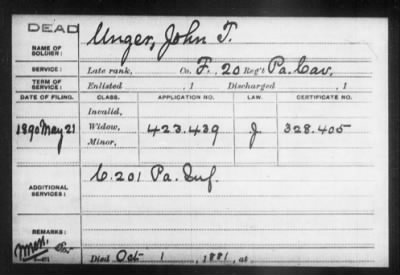 DEAD
NAME OF SOLDIER: Unger, John T.
SERVICE: Late rank, Co. F, 20 Reg't Pa. Cav.
TERM OF SERVICE: Enlisted , 1 Discharged , 1
DATE OF FILING. CLASS. APPLICATION NO. LAW. CERTIFICATE NO.
Invalid,
1890 May 21 Widow, 423.439 J 328.405
Minor,
ADDITIONAL SERVICES: C. 201 Pa. Inf.
REMARKS:
Died Oct 1 , 1881, at